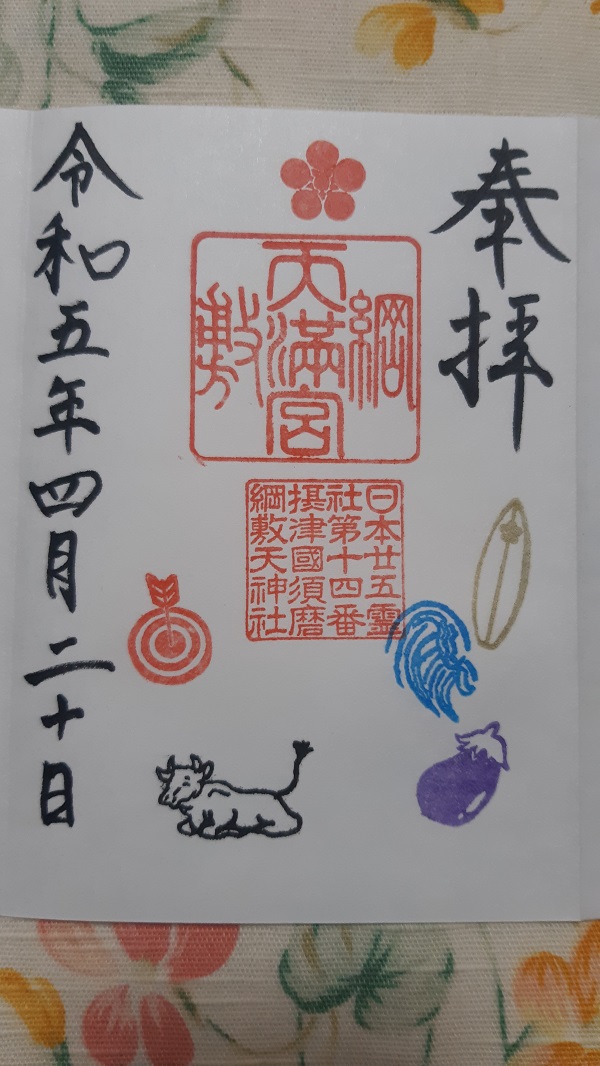 奉拝
綱敷天満宮
日本廿五霊
社第十四番
摂津國須磨
綱敷天神社
令和五年四月二十日